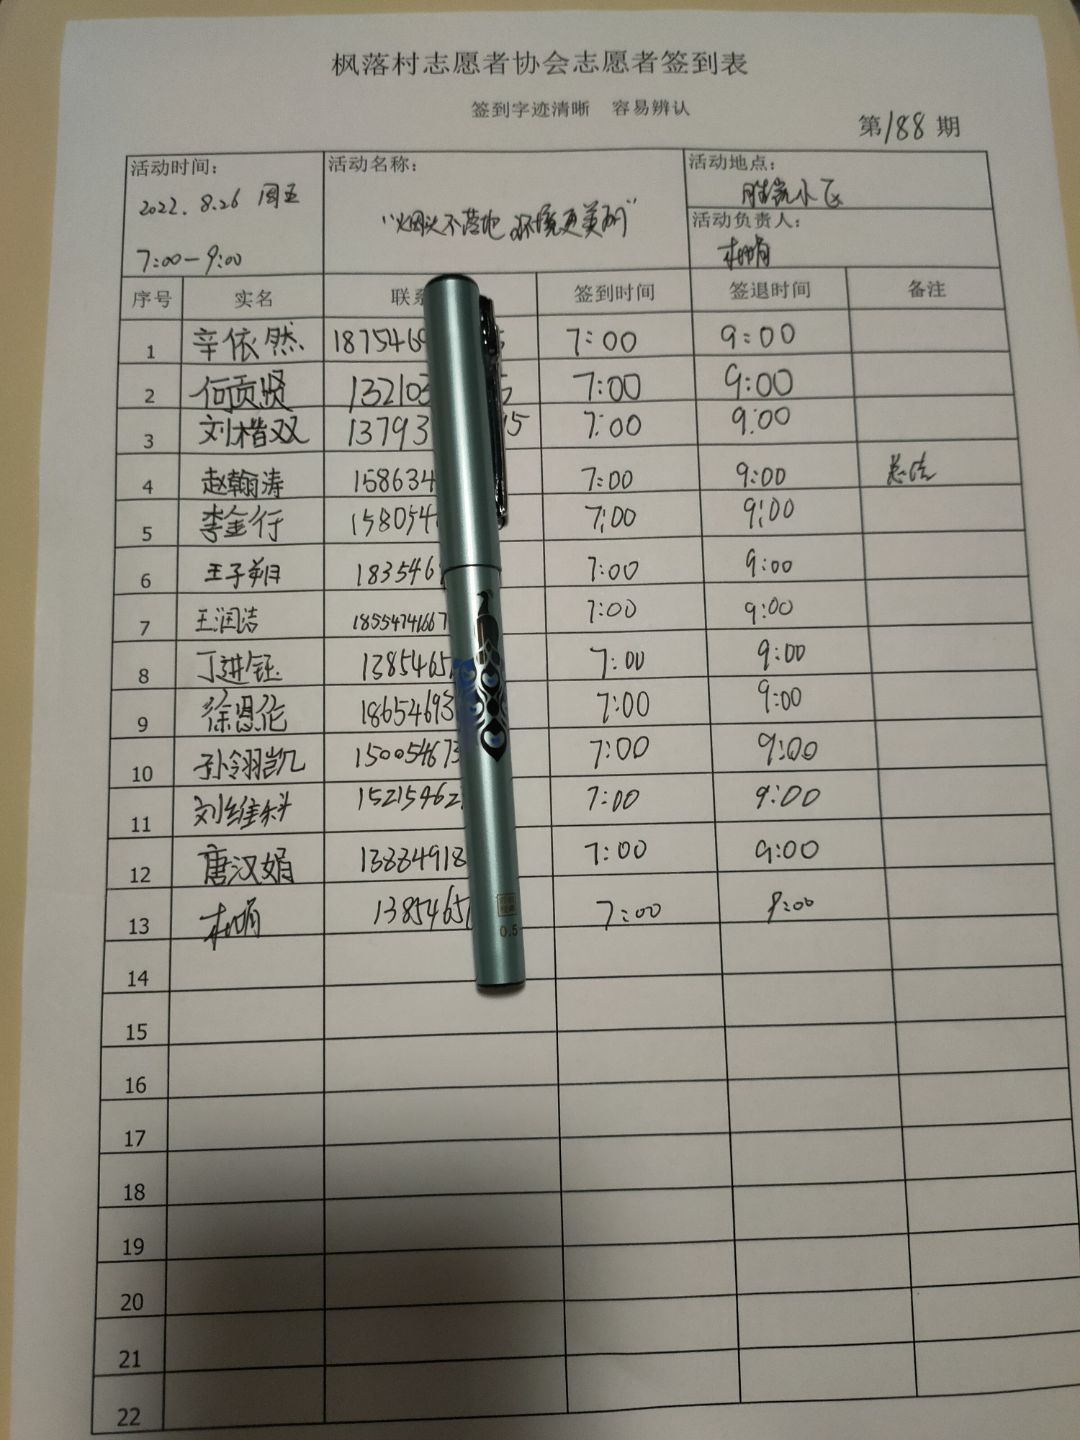 枫落村志愿者协会志愿者签到表
签到字迹清晰 容易辨认
第188期
活动时间: 活动名称: 活动地点:
2022.8.26 周五 胜凯小区
"烟头不落地 环境更美丽" 活动负责人:
7:00-9:00
序号 实名 联系 签到时间 签退时间 备注
1 辛依然 1875469 7:00 9:00
2 何贡贤 132103 5 7:00 9:00
3 刘楷双 13793 15 7:00 9:00
4 赵翰涛 158634 7:00 9:00
5 李金行 158054 7:00 9:00
6 王子朔 183546 7:00 9:00
7 王润洁 1855474166 7:00 9:00
8 丁进钰 1385465 7:00 9:00
9 徐恩伦 18654693 7:00 9:00
10 孙翎凯 150054673 7:00 9:00
11 刘维科 15215462 7:00 9:00
12 唐汉娟 13834918 7:00 9:00
13 1385465 7:00 9:00
14
15
16
17
18
19
20
21
22
0.5